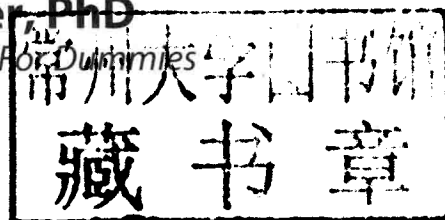 er, PhD
For Dummies
常州大学图书馆
藏书章